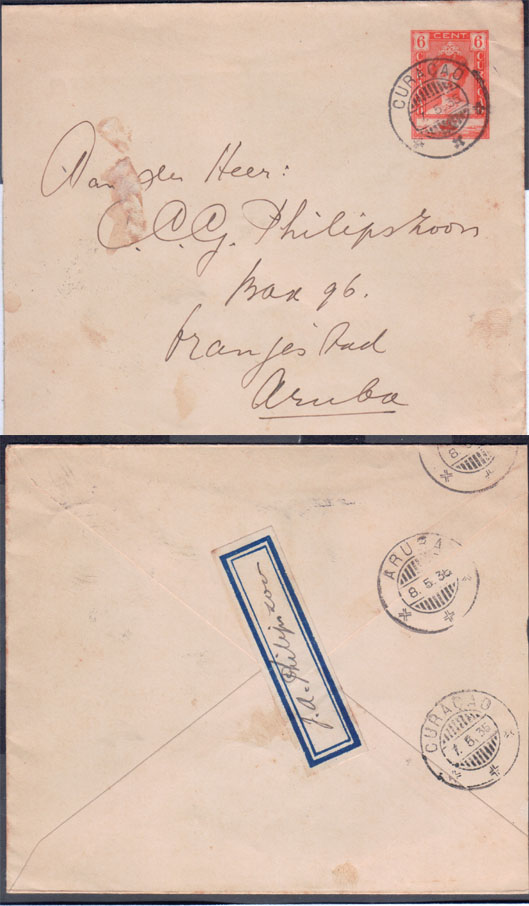 6 CENT 6
CURAÇAO
Aan den Heer:
C.C.G. Philipszoon
Box 96.
Oranjestad
Aruba
8
ARUBA
8.5.36
J.A. Philipszoon
CURAÇAO
7.5.36